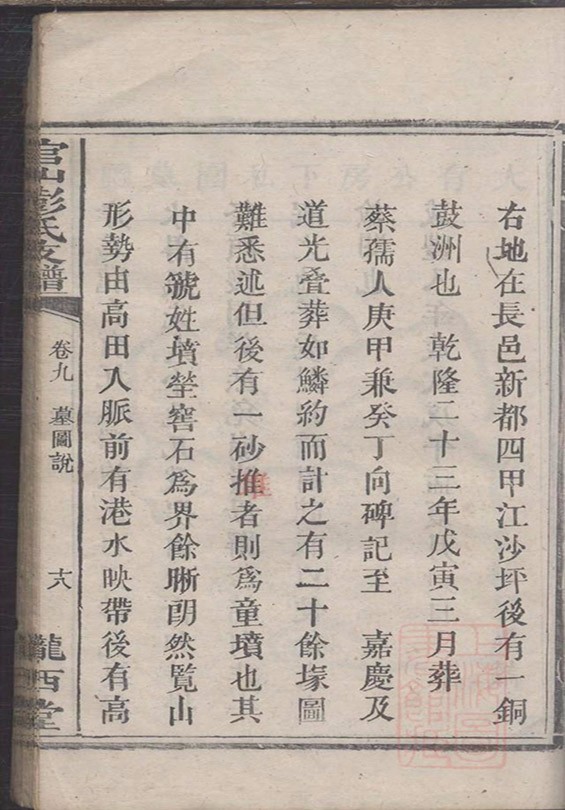 右地在長邑新都四甲江沙坪後有一銅
鼓洲也 乾隆二十三年戊寅三月葬
蔡孺人庚甲兼癸丁向碑記至 嘉慶及
道光叠葬如鱗約而計之有二十餘塚圖
難悉述但後有一砂推者則爲童墳也其
中有號姓墳塋窖石爲界餘晰朗然覽山
形勢由高田入脈前有港水映帶後有高
官山彭氏支譜
卷九 墓圖說
十八
隴西堂